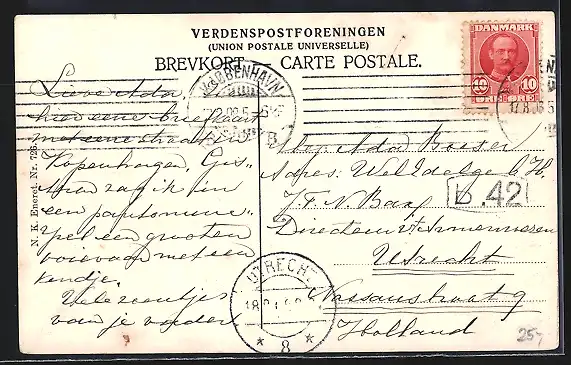 VERDENSPOSTFORENINGEN
(UNION POSTALE UNIVERSELLE)
BREVKORT. CARTE POSTALE.
DANMARK
10 10
ØRE ØRE
KJØBENHAVN
B
N. K. Eneret. Nr. 726.
Lieve Ada
hier eene briefkaart
met eene
Kopenhagen. Gis-
teren zag ik in
een pantomime-
spel een grooten
met een
kindje.
Vele zoentjes
van je vader
Ada
Adres: Wel Edelgeb. H.
J. F. N. Bax
Directeur
Utrecht
Nassaustraat 9
Holland
b. 42
UTRECHT
* 8 *
25,-